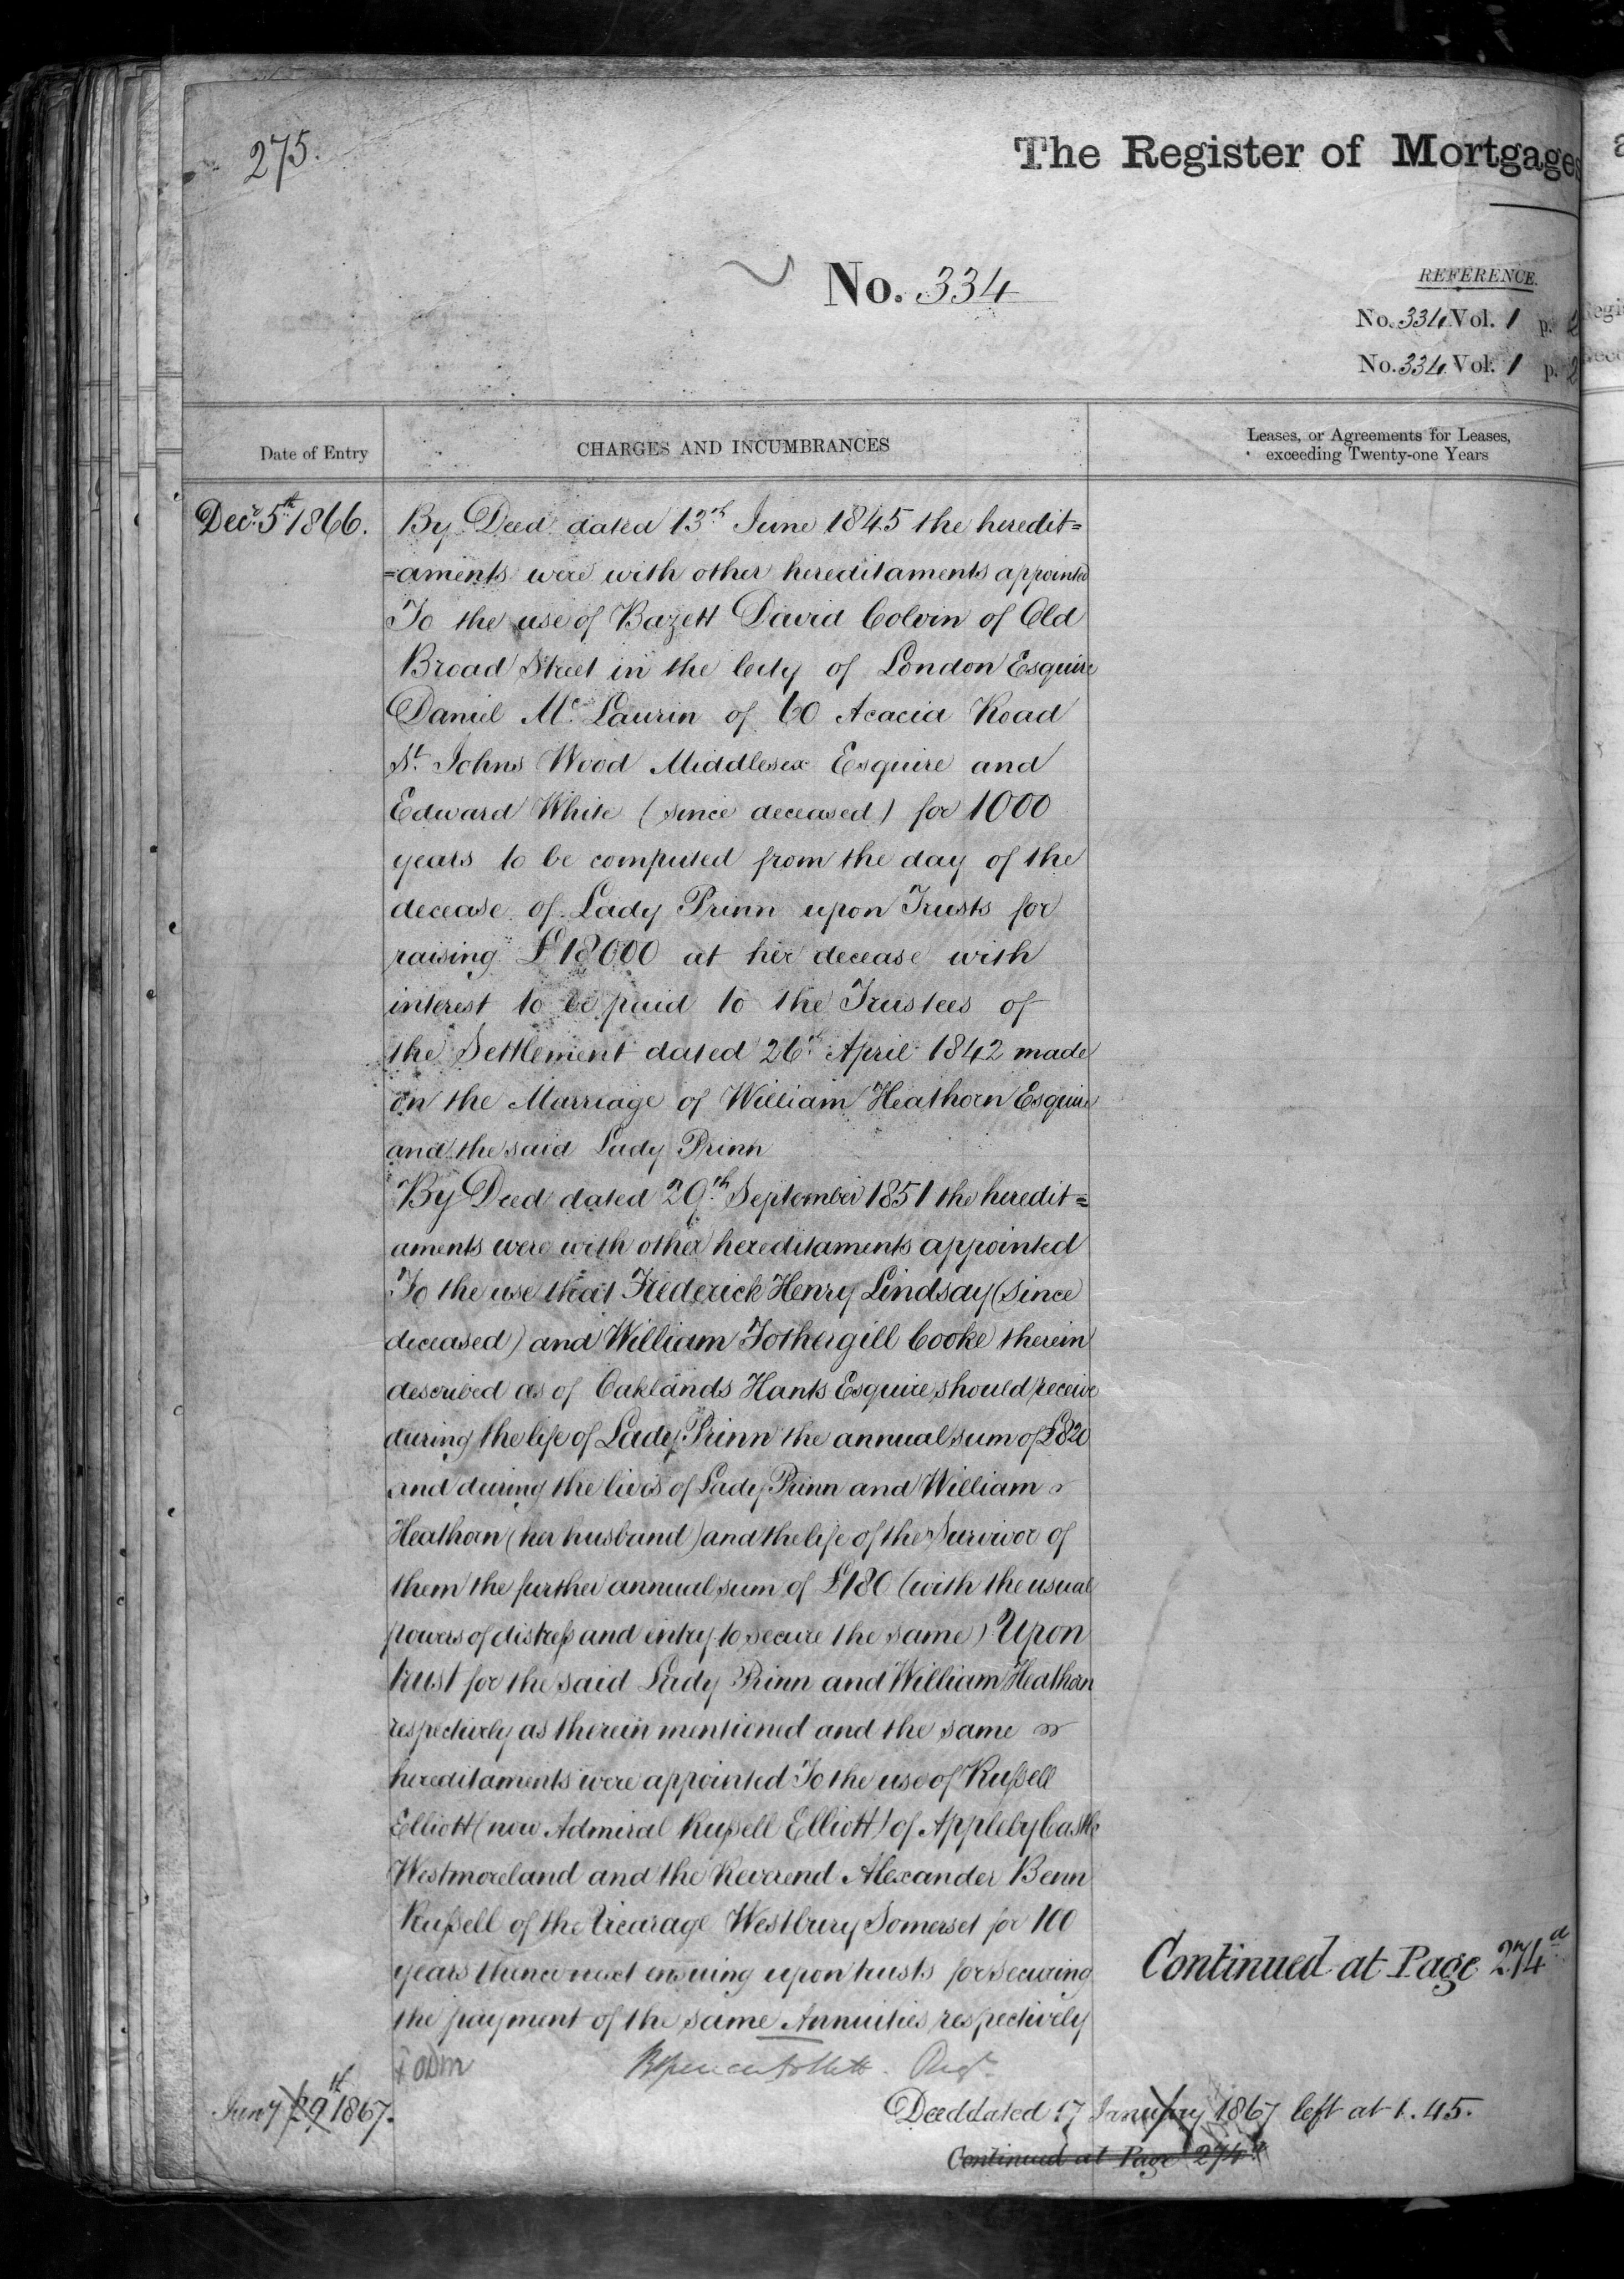 275.
The Register of Mortgages
No. 334
REFERENCE.
No. 334 Vol. 1 p. 2
No. 334 Vol. 1 p. 2
Date of Entry
CHARGES AND INCUMBRANCES
Leases, or Agreements for Leases,
exceeding Twenty-one Years
Decr. 5th 1866.
By Deed dated 13th June 1845 the heredit=
=aments were with other hereditaments appointed
To the use of Bazett David Colvin of Old
Broad Street in the City of London Esquire
Daniel Mc. Laurin of 60 Acacia Road
St. Johns Wood Middlesex Esquire and
Edward White (since deceased) for 1000
years to be computed from the day of the
decease of Lady Prinn upon Trusts for
raising £18000 at her decease with
interest to be paid to the Trustees of
the Settlement dated 26th April 1842 made
on the Marriage of William Heathorn Esquire
and the said Lady Prinn
By Deed dated 29th September 1851 the heredit=
aments were with other hereditaments appointed
To the use that Frederick Henry Lindsay (since
deceased) and William Fothergill Cooke therein
described as of Oaklands Hants Esquire should receive
during the life of Lady Prinn the annual sum of £820
and during the lives of Lady Prinn and William
Heathorn (her husband) and the life of the Survivor of
them the further annual sum of £180 (with the usual
powers of distress and entry to secure the same) Upon
trust for the said Lady Prinn and William Heathorn
respectively as therein mentioned and the same
hereditaments were appointed To the use of Russell
Elliott (now Admiral Russell Elliott) of Appleby Castle
Westmoreland and the Reverend Alexander Benn
Russell of the Vicarage Westbury Somerset for 100
years thence next ensuing upon trusts for securing
the payment of the same Annuities respectively
Continued at Page 274a
Jany 29th 1867.
Deed dated 17 January 1867 left at 1.45.
Continued at Page 274a